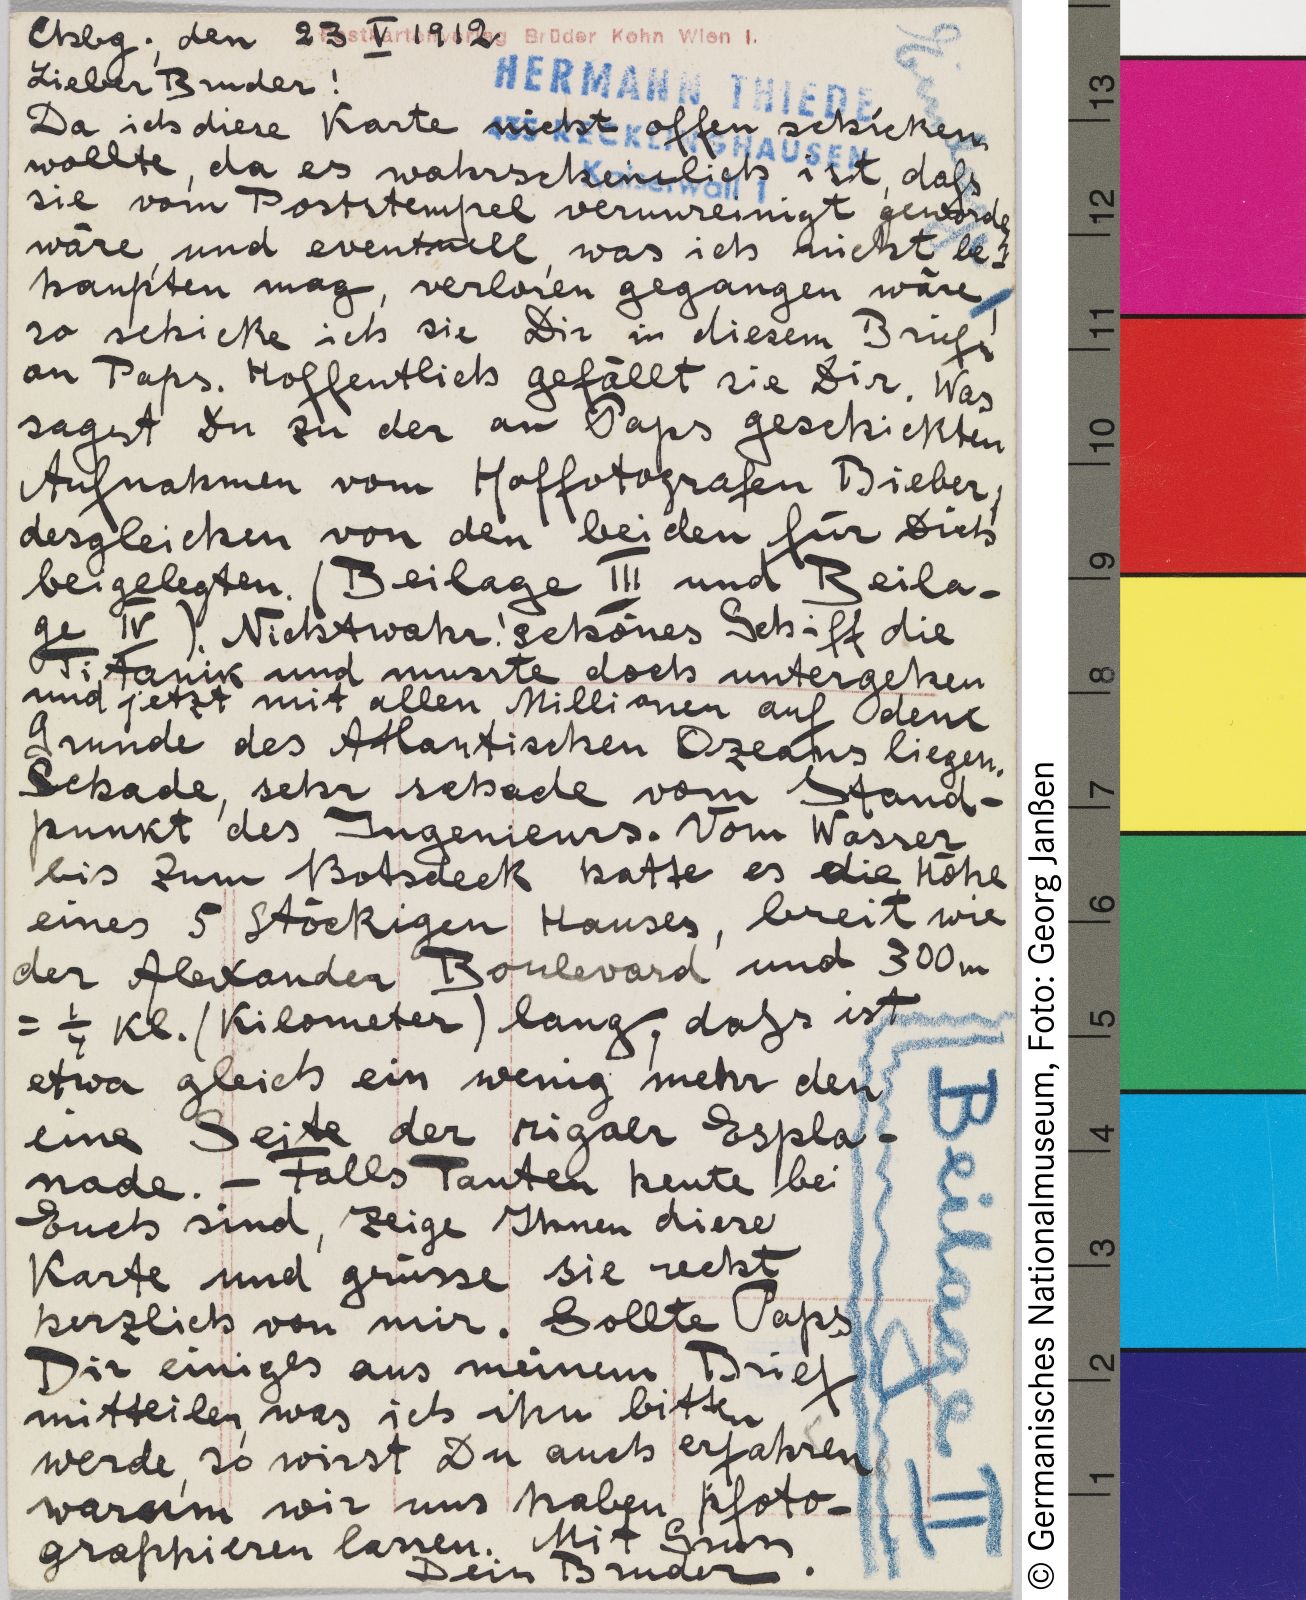 Chbg., den 23 V 1912.
Postkartenverlag Brüder Kohn Wien I.
HERMANN THIEDE
435 RECKLINGHAUSEN
Kaiserwall 1
Lieber Bruder!
Da ich diese Karte nicht offen schicken
wollte, da es wahrscheinlich ist, dass
sie vom Poststempel verunreinigt geworden
wäre, und eventuell, was ich nicht be-
haupten mag, verloren gegangen wäre,
so schicke ich sie Dir in diesem Brief
an Paps. Hoffentlich gefällt sie Dir. Was
sagst Du zu der an Paps geschickten
Aufnahmen vom Hoffotografen Bieber,
desgleichen von den beiden für Dich
beigelegten. (Beilage III und Beila-
ge IV). Nichtwahr! schönes Schiff die
Titanik und musste doch untergehen
und jetzt mit allen Millionen auf dem
Grunde des Atlantischen Ozeans liegen.
Schade, sehr schade vom Stand-
punkt des Ingenieurs. Vom Wasser
bis zum Botsdeck hatte es die Höhe
eines 5 stöckigen Hauses, breit wie
der Alexander Boulevard und 300m
= ¼ Kl. (Kilometer) lang, dass ist
etwa gleich ein wenig mehr den
eine Seite der rigaer Espla-
nade. – Falls Tanten heute bei
Euch sind, zeige Ihnen diese
Karte und grüsse sie recht
herzlich von mir. Sollte Paps
Dir einiges aus meinem Brief
mitteilen, was ich ihn bitten
werde, so wirst Du auch erfahren
warum wir uns haben photo-
graphieren lassen. Mit Gruss
Dein Bruder.
Beilage II
© Germanisches Nationalmuseum, Foto: Georg Janßen
13
12
11
10
9
8
7
6
5
4
3
2
1